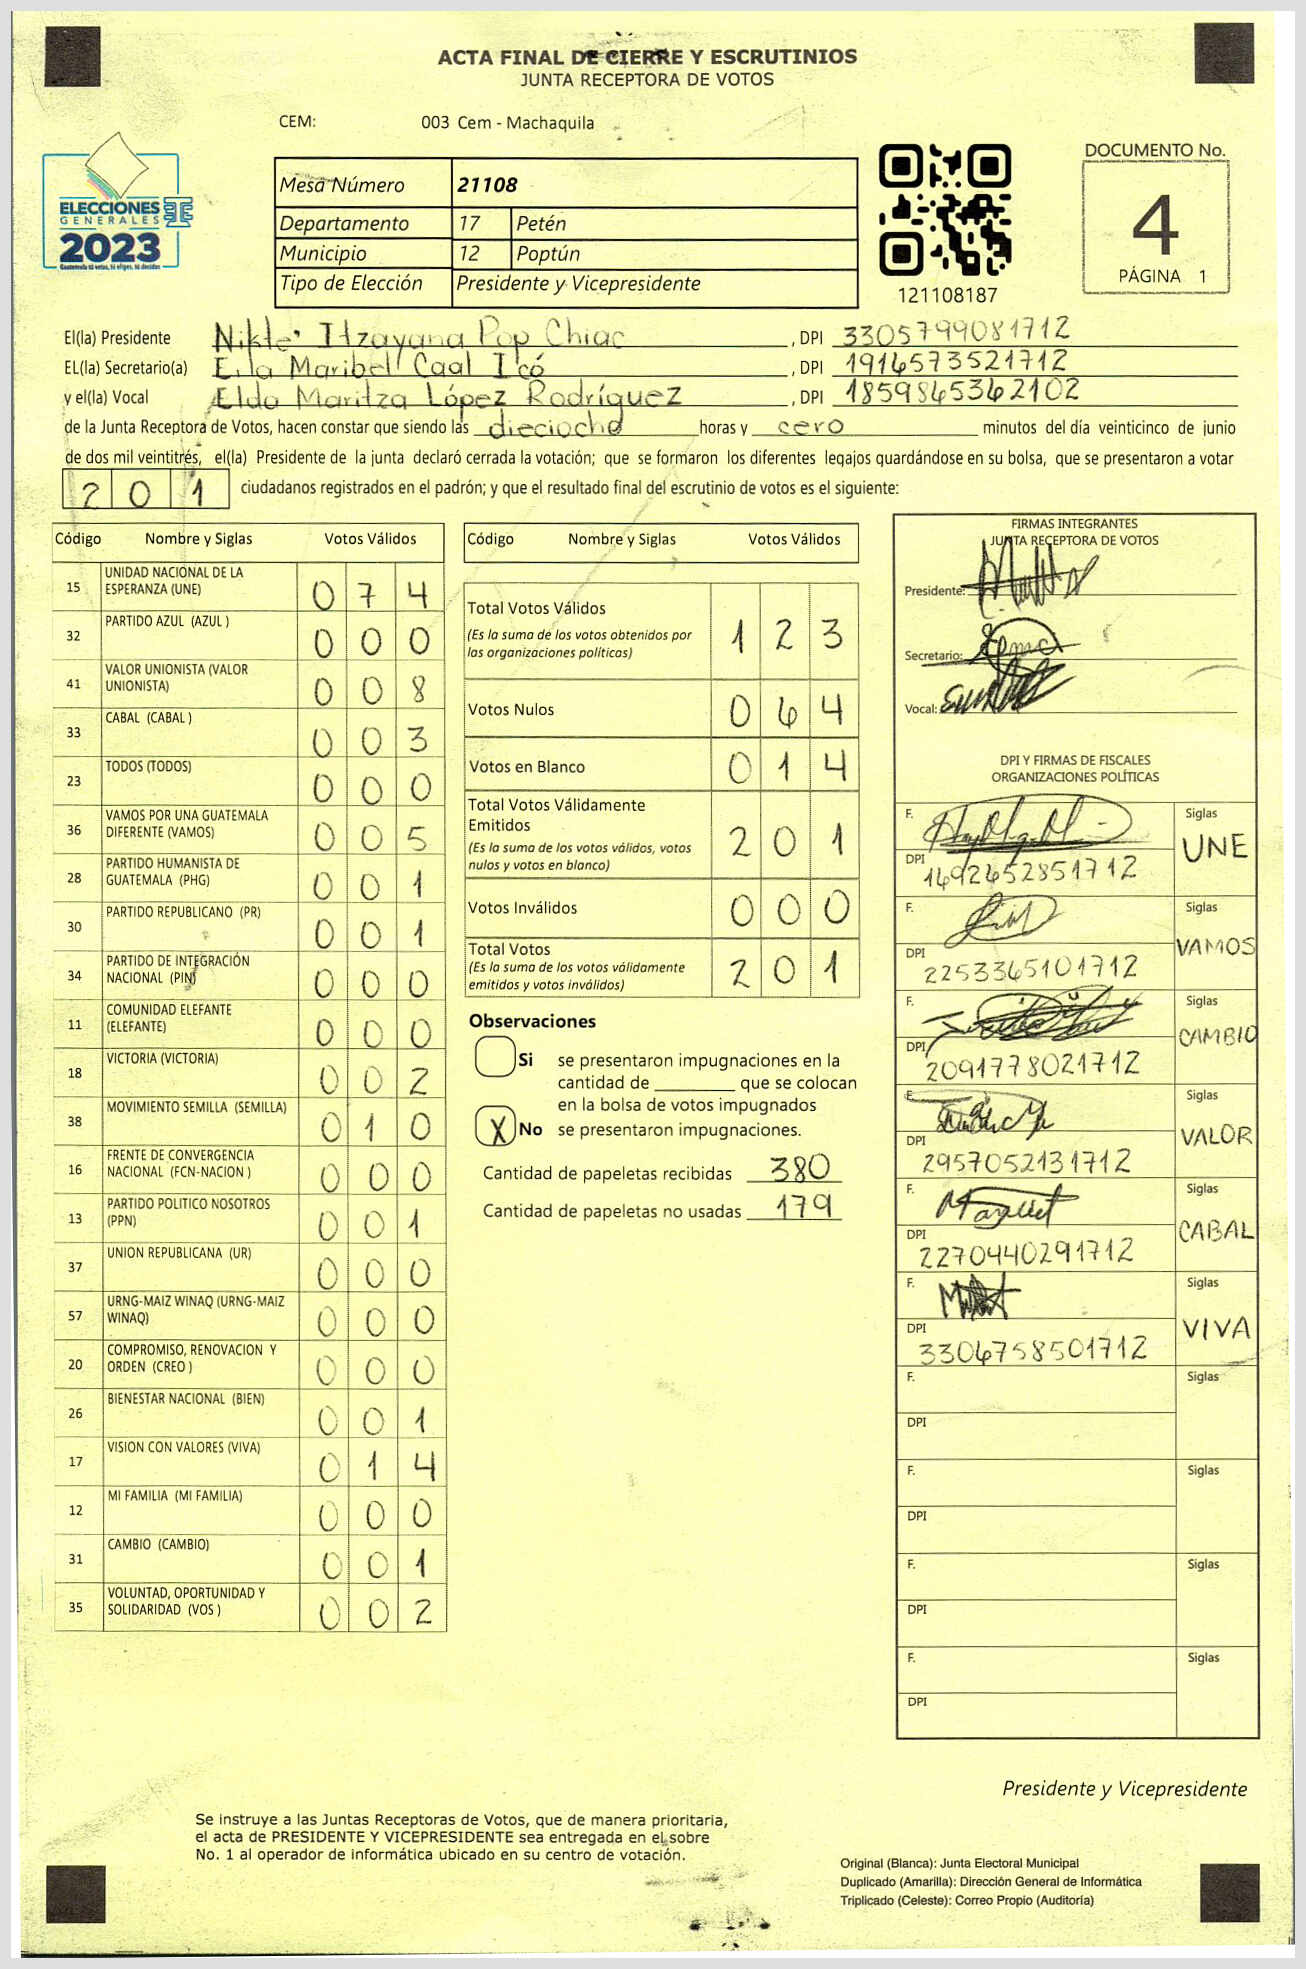 ACTA FINAL DE CIERRE Y ESCRUTINIOS
JUNTA RECEPTORA DE VOTOS
CEM: 003 Cem - Machaquila
ELECCIONES
GENERALES
2023
Guatemala tú votas, tú eliges, tú decides
Mesa Número 21108
Departamento 17 Petén
Municipio 12 Poptún
Tipo de Elección Presidente y Vicepresidente
121108187
DOCUMENTO No.
4
PÁGINA 1
El(la) Presidente Nikte' Itzayana Pop Chiac , DPI 3305799081712
EL(la) Secretario(a) Maribel Caal Icó , DPI 1914573521712
y el(la) Vocal Elda Maritza López Rodríguez , DPI 1859845362102
de la Junta Receptora de Votos, hacen constar que siendo las dieciocho horas y cero minutos del día veinticinco de junio
de dos mil veintitrés, el(la) Presidente de la junta declaró cerrada la votación; que se formaron los diferentes legajos guardándose en su bolsa, que se presentaron a votar
201 ciudadanos registrados en el padrón; y que el resultado final del escrutinio de votos es el siguiente:
Código Nombre y Siglas Votos Válidos
15 UNIDAD NACIONAL DE LA
ESPERANZA (UNE) 074
32 PARTIDO AZUL (AZUL ) 000
41 VALOR UNIONISTA (VALOR
UNIONISTA) 008
33 CABAL (CABAL ) 003
23 TODOS (TODOS) 000
36 VAMOS POR UNA GUATEMALA
DIFERENTE (VAMOS) 005
28 PARTIDO HUMANISTA DE
GUATEMALA (PHG) 001
30 PARTIDO REPUBLICANO (PR) 001
34 PARTIDO DE INTEGRACIÓN
NACIONAL (PIN) 000
11 COMUNIDAD ELEFANTE
(ELEFANTE) 000
18 VICTORIA (VICTORIA) 002
38 MOVIMIENTO SEMILLA (SEMILLA) 010
16 FRENTE DE CONVERGENCIA
NACIONAL (FCN-NACION ) 000
13 PARTIDO POLITICO NOSOTROS
(PPN) 001
37 UNION REPUBLICANA (UR) 000
57 URNG-MAIZ WINAQ (URNG-MAIZ
WINAQ) 000
20 COMPROMISO, RENOVACION Y
ORDEN (CREO ) 000
26 BIENESTAR NACIONAL (BIEN) 001
17 VISION CON VALORES (VIVA) 014
12 MI FAMILIA (MI FAMILIA) 000
31 CAMBIO (CAMBIO) 001
35 VOLUNTAD, OPORTUNIDAD Y
SOLIDARIDAD (VOS ) 002
Código Nombre y Siglas Votos Válidos
Total Votos Válidos 123
(Es la suma de los votos obtenidos por
las organizaciones políticas)
Votos Nulos 064
Votos en Blanco 014
Total Votos Válidamente
Emitidos 201
(Es la suma de los votos válidos, votos
nulos y votos en blanco)
Votos Inválidos 000
Total Votos 201
(Es la suma de los votos válidamente
emitidos y votos inválidos)
Observaciones
Si se presentaron impugnaciones en la
cantidad de que se colocan
en la bolsa de votos impugnados
X No se presentaron impugnaciones.
Cantidad de papeletas recibidas 380
Cantidad de papeletas no usadas 179
FIRMAS INTEGRANTES
JUNTA RECEPTORA DE VOTOS
Presidente:
Secretario:
Vocal:
DPI Y FIRMAS DE FISCALES
ORGANIZACIONES POLÍTICAS
F. Siglas
UNE
DPI 1492452851712
F. Siglas
VAMOS
DPI 2253365101712
F. Siglas
CAMBIO
DPI 2091778021712
F. Siglas
VALOR
DPI 2957052131712
F. Siglas
CABAL
DPI 2270440291712
F. Siglas
VIVA
DPI 3304758501712
F. Siglas
DPI
F. Siglas
DPI
F. Siglas
DPI
F. Siglas
DPI
Presidente y Vicepresidente
Se instruye a las Juntas Receptoras de Votos, que de manera prioritaria,
el acta de PRESIDENTE Y VICEPRESIDENTE sea entregada en el sobre
No. 1 al operador de informática ubicado en su centro de votación.
Original (Blanca): Junta Electoral Municipal
Duplicado (Amarilla): Dirección General de Informática
Triplicado (Celeste): Correo Propio (Auditoría)